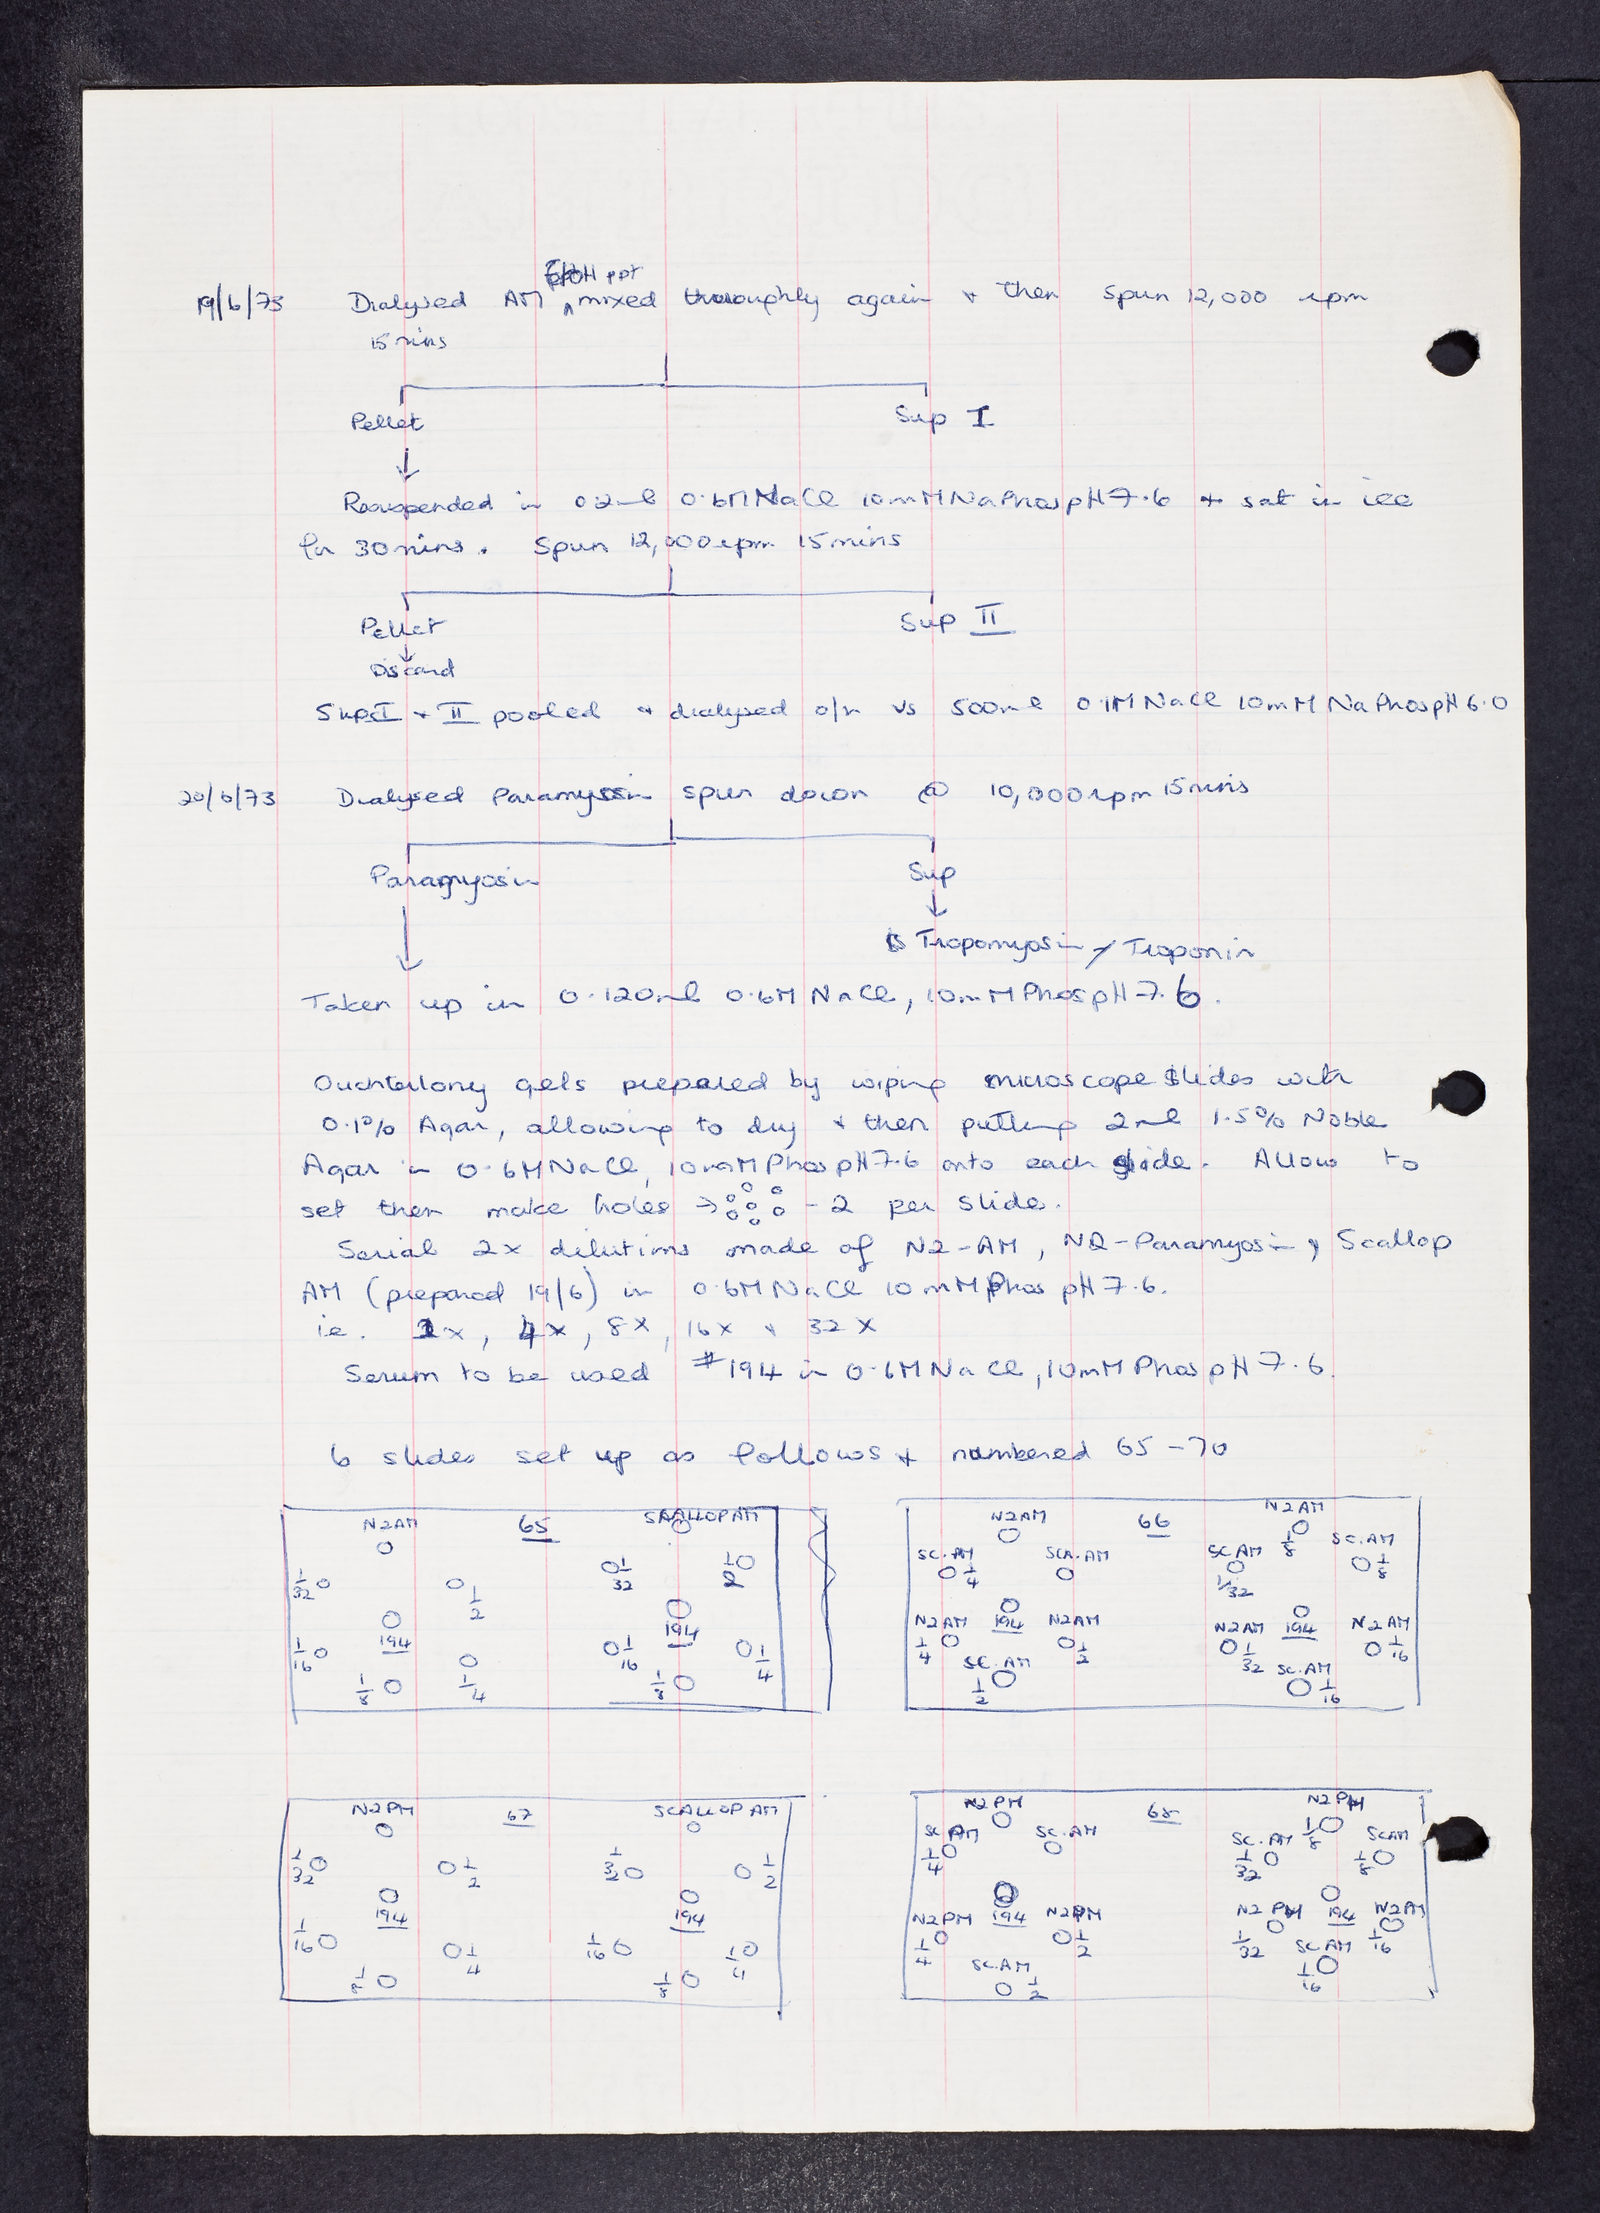 EtOH ppt
19/6/73 Dialysed AM ^ mixed thoroughly again + then spun 12,000 rpm
15 mins
Pellet Sup I
Resuspended in 0.2ml 0.6M NaCl 10mM NaPhos pH 7.6 + sat in ice
for 30 mins. Spun 12,000 rpm 15 mins
Pellet Sup II
Discard
Sups I + II pooled + dialysed o/n vs 500ml 0.1M NaCl 10mM NaPhos pH 6.0
20/6/73 Dialysed Paramyosin spun down @ 10,000 rpm 15 mins
Paramyosin Sup
Tropomyosin / Troponin
Taken up in 0.120ml 0.6M NaCl, 10mM Phos pH 7.6.
Ouchterlony gels prepared by wiping microscope slides with
0.1% Agar, allowing to dry + then putting 2ml 1.5% Noble
Agar in 0.6M NaCl, 10mM Phos pH 7.6 onto each slide. Allow to
set then make holes → - 2 per slide.
Serial 2x dilutions made of N2-AM, N2-Paramyosin, Scallop
AM (prepared 19/6) in 0.6M NaCl 10mM Phos pH 7.6.
ie. 2x, 4x, 8x, 16x + 32x
Serum to be used #194 in 0.6M NaCl, 10mM Phos pH 7.6.
6 slides set up as follows + numbered 65-70
N2AM 65 SCALLOP AM
1/32 1/2 1/32 1/2
194 194
1/16 1/4 1/16 1/4
1/8 1/8
N2AM 66 N2AM
1/8
SC.AM SCA.AM SC AM SC.AM
1/4 1/32 1/8
N2AM 194 N2AM N2AM 194 N2AM
1/4 1/2 1/32 1/16
SC.AM SC.AM
1/2 1/16
N2PM 67 SCALLOP AM
1/32 1/2 1/32 1/2
194 194
1/16 1/4 1/16 1/4
1/8 1/8
N2PM 68 N2PM
1/8
SC AM SC.AM SC.AM SCAM
1/4 1/32 1/8
N2PM 194 N2PM N2PM 194 N2PM
1/4 1/2 1/32 1/16
SC.AM SC AM
1/2 1/16